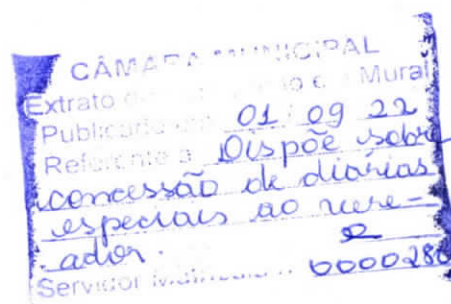 CÂMARA MUNICIPAL
Extrato e Mural
Publicado 01 09 22
Referente a Dispõe sobre
concessão de diárias
especiais ao vere-
ador.
Servidor Matrícula 0000280